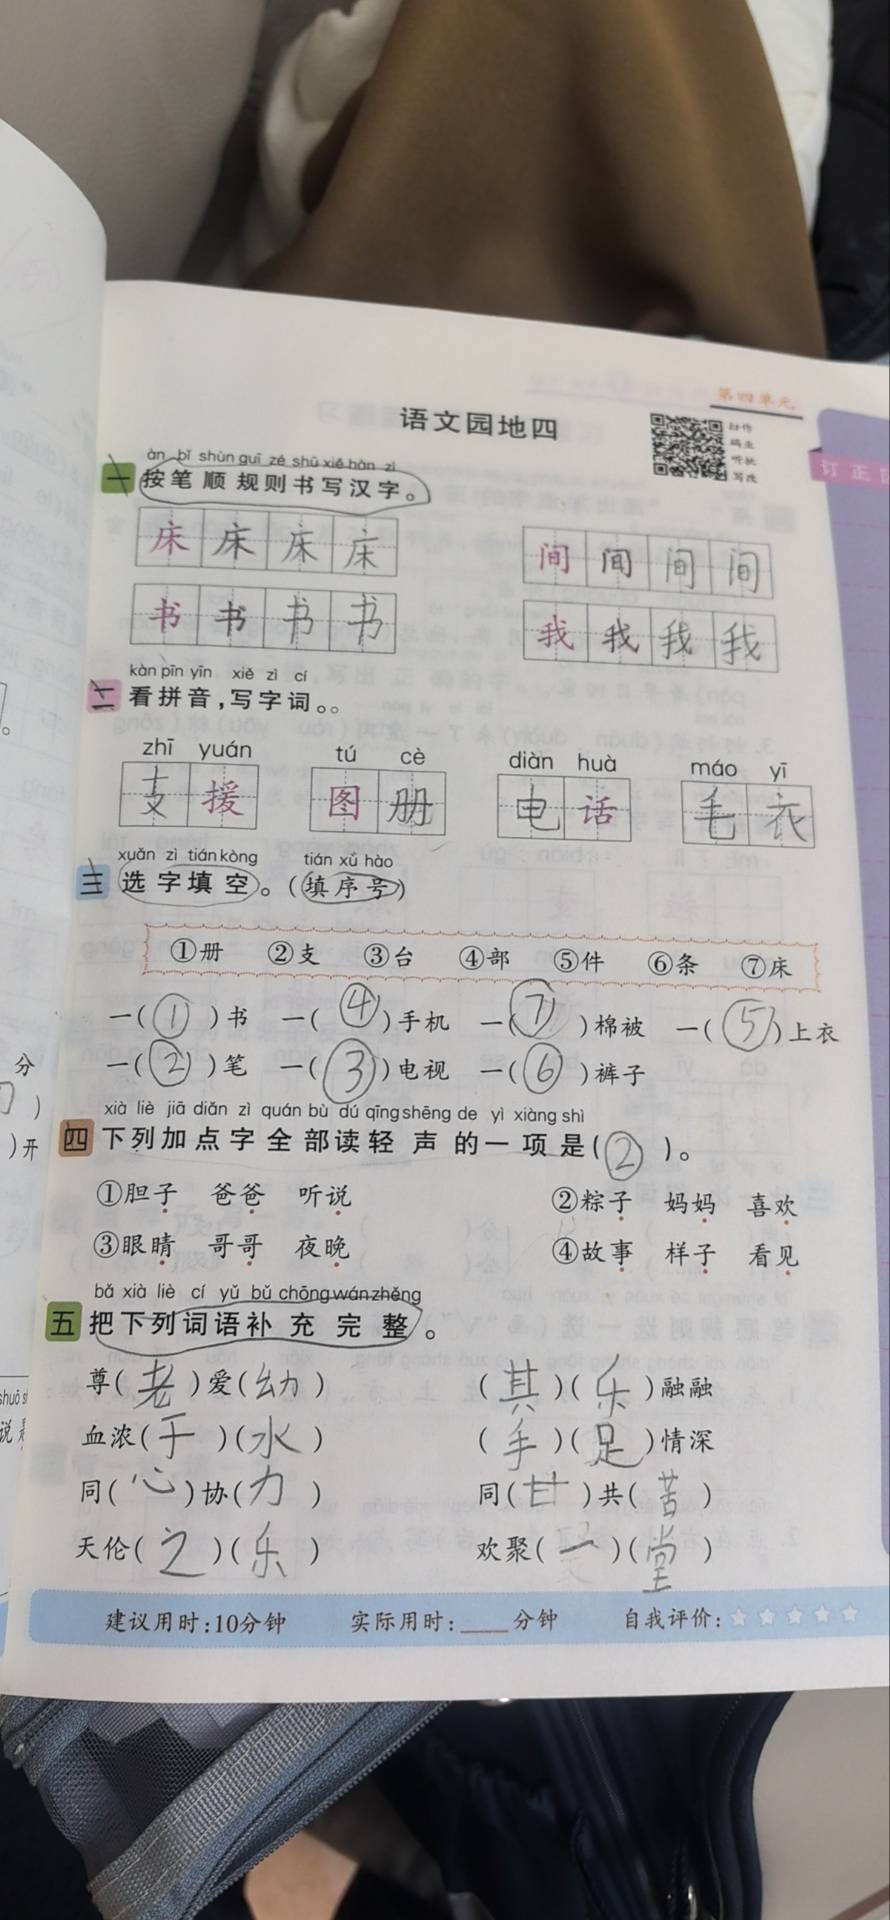 第四单元
语文园地四
扫作
码业
听批
写改
订正
àn bǐ shùn guī zé shū xiě hàn zì
一 按笔顺规则书写汉字。
床 床 床 床 间 间 间 间
书 书 书 书 我 我 我 我
kàn pīn yīn xiě zì cí
二 看拼音,写字词。。
zhī yuán tú cè diàn huà máo yī
支 援 图 册 电 话 毛 衣
xuǎn zì tián kòng tián xǔ hào
三 选字填空。(填序号)
①册 ②支 ③台 ④部 ⑤件 ⑥条 ⑦床
一(①)书 一(④)手机 一(⑦)棉被 一(⑤)上衣
一(②)笔 一(③)电视 一(⑥)裤子
xià liè jiā diǎn zì quán bù dú qīng shēng de yì xiàng shì
四 下列加点字全部读轻声的一项是(②)。
①胆子 爸爸 听说 ②粽子 妈妈 喜欢
③眼睛 哥哥 夜晚 ④故事 样子 看见
bǎ xià liè cí yǔ bǔ chōng wán zhěng
五 把下列词语补充完整。
尊(老)爱(幼) (其)(乐)融融
血浓(于)(水) (手)(足)情深
同(心)协(力) 同(甘)共(苦)
天伦(之)(乐) 欢聚(一)(堂)
建议用时:10分钟 实际用时:____分钟 自我评价:☆☆☆☆☆
分
)开